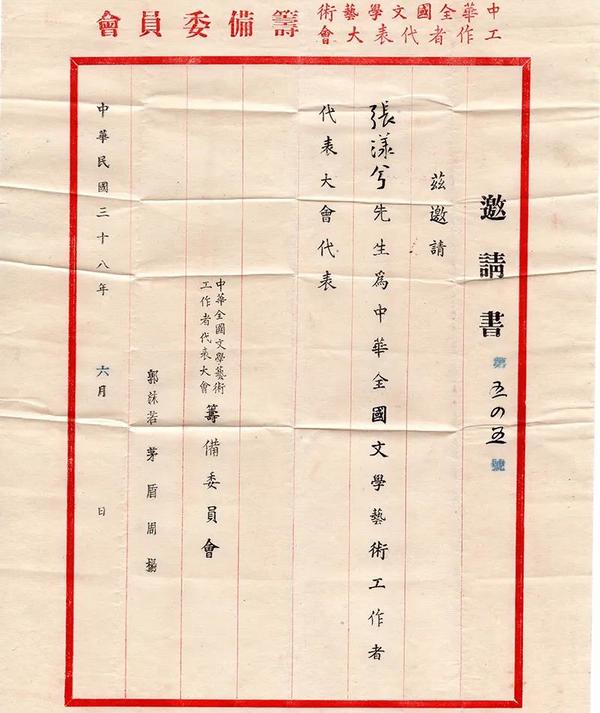 中華全國文學藝術
工作者代表大會
籌備委員會
邀請書 第五〇五號
茲邀請
張漾兮先生爲中華全國文學藝術工作者
代表大會代表
中華全國文學藝術
工作者代表大會
籌備委員會
郭沫若 茅盾 周揚
中華民國三十八年 六月 日